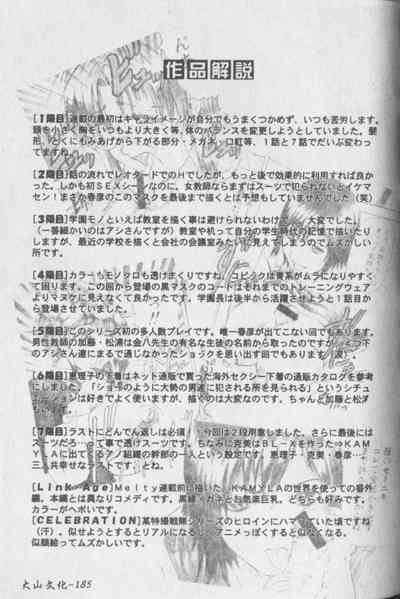 作品解説
[1限目]連載の最初はキャライメージが自分でもうまくつかめず、いつも苦労します。
頭を小さく胸をいつもより大きく等、体のバランスを変更しようとしていました。髪
形、とくにもみあげから下がる部分・メガネ・口町等、1話と7話でだいぶ変わっ
てますね。
[2限目]話の流れでレオタードでのHでしたが、もっと後で効果的に利用すれば良か
った。しかも初SEXシーンなのに。女教師ならまずはスーツで犯られないとイケマ
セン!まさか春彦がこのマスクを最後まで描くとは予想もしていませんでした(笑)
[3限目]学園モノといえば教室を描く事は避けられないわけ 大変でした。
(一番細かいのはアシさんですが)教室や机って自分の学生時代の記憶で描いたり
しますが、最近の学校を描くと会社の会議室みたいに見えてしまうのでムズかしい
所です。
[4限目]カラーもモノクロも透けまくりですね。コピックは青系がムラになりやすく
て困ります。この回から登場の黒マスクのコートはそれまでのトレーニングウェア
よりマヌケに見えなくて良かったです。学園長は後半から活躍させようと1話目か
ら登場させていました。
[5限目]このシリーズ初の多人数プレイです。唯一春彦が出てこない回でもあります。
男性教師の加藤・松浦は金八先生の有名な生徒の名前から取ったのですが、 つ下
のアシさん達にまるで通じなかったショックを思い出す回でもあります(涙)。
[6限目]恵理子の下着はネット通販で買った海外セクシー下着の通販カタログを参考
にしました。「ショーのように大勢の男達に犯される所を見られる」というシチュ
エーションは好きでよく使いますが、描くのは大変なのです。ちゃんと加藤と松
[7限目]ラストにどんでん返しは必須!今回は2段用意しました。さらに最後には
スーツだろ 丁寧で透けスーツです。ちなみに克美はBL-Xを作った⇒KAM
YLAに出てくるアノ組織の幹部の一人という設定です。恵理子・克美・春彦…
三人共幸せなラストです…とね。
[Link Age]Melty連載前に描いた、KAMYLAの世界を使っての番外
編。本編とは異なりコメディです。黒縁メガネとお気楽巨乳、どちらも好みです。
カラーがヘボいです。
[CELEBRATION]某特撮戦隊シリーズのヒロインにハマっていた頃ですね
(汗)。似せようとするとリアルになるし、アニメっぽくすると似なくなる。
似顔絵ってムズかしいです。
大山文化-185